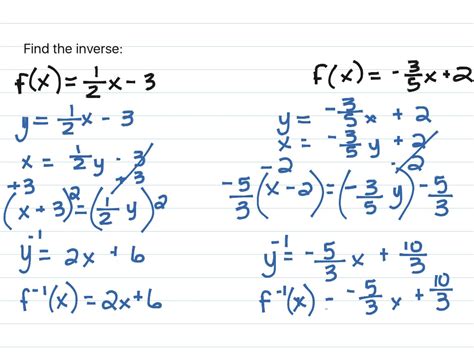 Find the inverse:
f(x) = 1/2 x - 3
y = 1/2 x - 3
x = 1/2 y - 3
+3 + 3
(x + 3)2 = (1/2 y) 2
y-1 = 2x + 6
f-1(x) = 2x+6
f(x) = - 3/5 x + 2
y = - 3/5 x + 2
x = - 3/5 y + 2
-2 -2
- 5/3 (x - 2) = (- 3/5 y) - 5/3
y-1 = - 5/3 x + 10/3
f-1(x) - - 5/3 x + 10/3